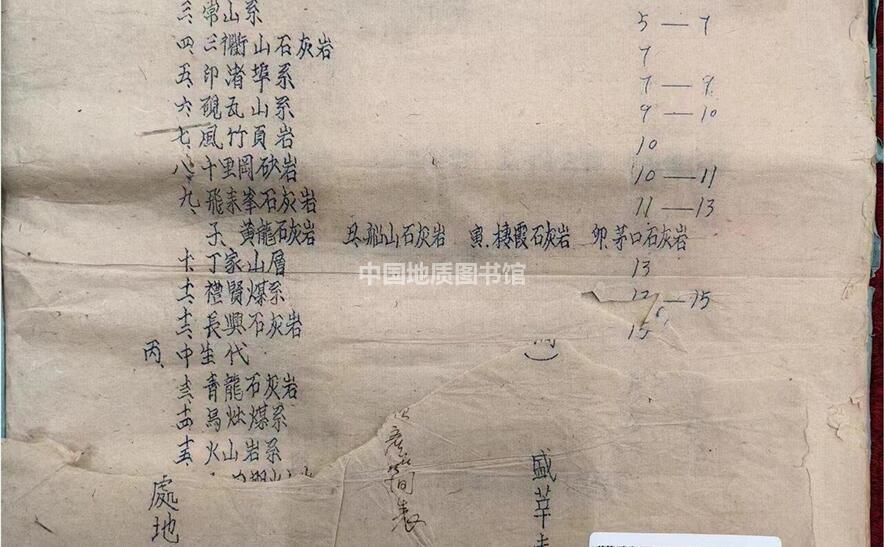 三、常山系 5—7
四、三衢山石灰岩 7
五、印渚埠系 7—9
六、硯瓦山系 9—10
七、風竹頁岩 10
八、千里岡砂岩 10—11
九、飛来峯石灰岩 11—13
子、黄龍石灰岩 丑、船山石灰岩 寅、棲霞石灰岩 卯、茅口石灰岩
十、丁家山層 13
十一、禮賢煤系 15
十二、長興石灰岩 15
丙、中生代
十三、青龍石灰岩
十四、烏灶煤系
十五、火山岩系
處地
簡表
盛莘
中国地质图书馆